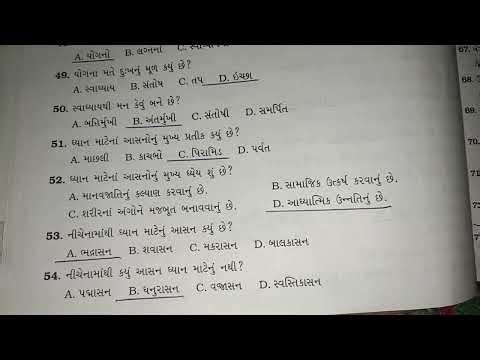 A. યોગનો B. લગ્નનો C. સ્વાધ્યાય
49. યોગના મતે દુઃખનું મૂળ કયું છે?
A. સ્વાધ્યાય B. સંતોષ C. તપ D. ઇચ્છા
50. સ્વાધ્યાયથી મન કેવું બને છે?
A. બહિર્મુખી B. અંતર્મુખી C. સંતોષી D. સમર્પિત
51. ધ્યાન માટેનાં આસનોનું મુખ્ય પ્રતીક કયું છે?
A. માછલી B. કાચબો C. પિરામિડ D. પર્વત
52. ધ્યાન માટેનાં આસનોનું મુખ્ય ધ્યેય શું છે?
A. માનવજાતિનું કલ્યાણ કરવાનું છે. B. સામાજિક ઉત્કર્ષ કરવાનું છે.
C. શરીરનાં અંગોને મજબૂત બનાવવાનું છે. D. આધ્યાત્મિક ઉન્નતિનું છે.
53. નીચેનામાંથી ધ્યાન માટેનું આસન કયું છે?
A. ભદ્રાસન B. શવાસન C. મકરાસન D. બાલકાસન
54. નીચેનામાંથી કયું આસન ધ્યાન માટેનું નથી?
A. પદ્માસન B. ધનુરાસન C. વજાસન D. સ્વસ્તિકાસન
67.
68.
69
70
7